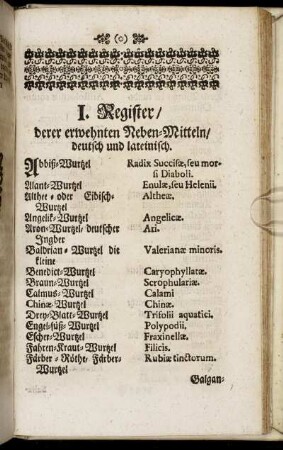 (o)
I. Register/
derer erwehnten Neben-Mitteln/
deutsch und lateinisch.
Abbiß-Wurtzel Radix Succisæ, seu mor-
si Diaboli.
Alant-Wurtzel Enulæ, seu Helenii.
Althee- oder Eibisch- Altheæ.
Wurtzel
Angelik-Wurtzel Angelicæ.
Aron-Wurtzel/ deutscher Ari.
Ingber
Baldrian-Wurtzel die Valerianæ minoris.
kleine
Benedict-Wurtzel Caryophyllatæ.
Braun-Wurtzel Scrophulariæ.
Calmus-Wurtzel Calami
Chinæ Wurtzel Chinæ.
Drey-Blatt-Wurtzel Trifolii aquatici.
Engel-süß-Wurtzel Polypodii.
Escher-Wurtzel Fraxinellæ.
Fahren-Kraut-Wurtzel Filicis.
Färber-Röthe, Färber- Rubiæ tinctorum.
Wurtzel
Galgan-